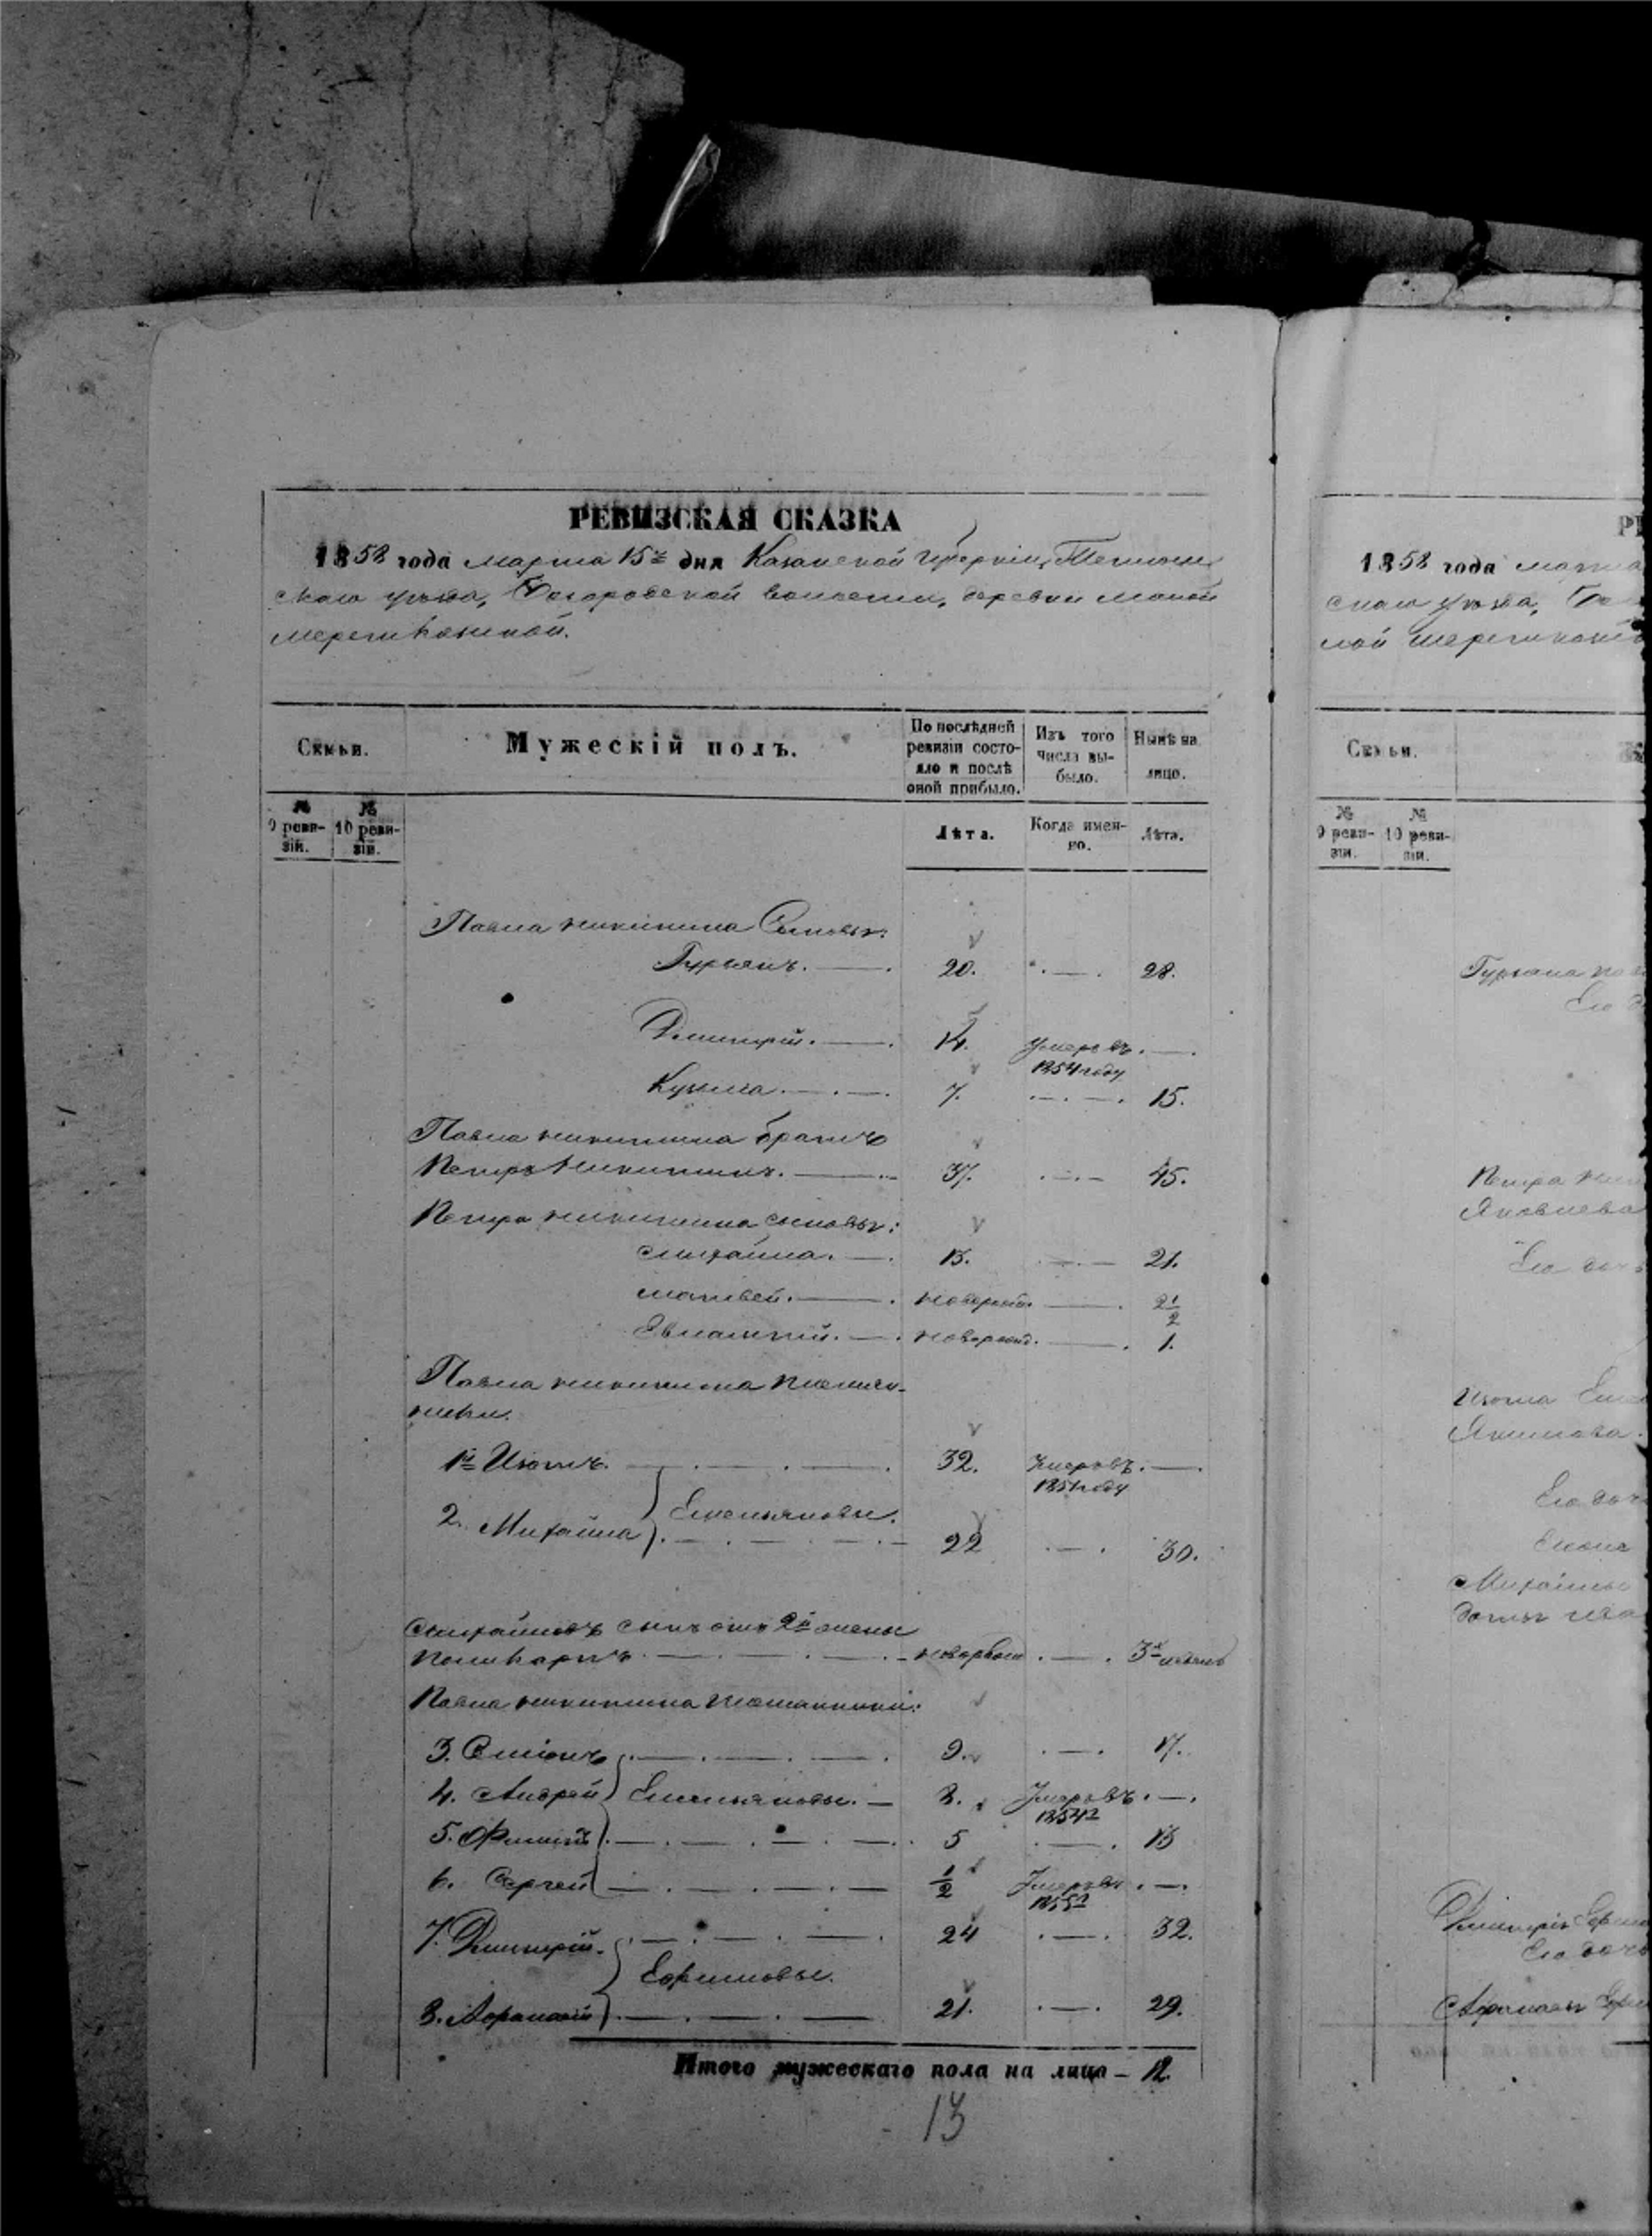 РЕВИЗСКАЯ СКАЗКА
1858 года марта 15го дня Казанской губерніи, Тетюш-
скаго уѣзда, Богородской волости, деревни Малой
Семьи.
Мужескій полъ.
По послѣдней ревизіи состояло и послѣ оной прибыло.
Изъ того числа выбыло.
Нынѣ на лицо.
№ 9 ревизіи.
№ 10 ревизіи.
Лѣта.
Когда именно.
Лѣта.
Павла Никитина Сыновья:
Гурьянъ. 20. 28.
Дмитрій. 14. Умеръ въ 1854 году
Кузьма 7. 15.
Павла Никитина братъ
Петръ Никитинъ. 37. 45.
Петра Никитина сыновья:
Михайла. 13. 21.
Матвей. новорожд. 2 1/2
Евлампій. новорожд. 1.
Павла Никитина племян-
ники.
1й Изотъ. 32. Умеръ въ 1851 году
2. Михайла Емельяновы. 22 30.
Михайловъ сынъ отъ 2й жены
Поликарпъ новорожд. 3х недель
Павла Никитина племянники:
3. Семіонъ 9. 17.
4. Андрей Емельяновы. 8. Умеръ въ 1854 г
5. Филипъ 5 13
6. Сергей 1/2 Умеръ въ
7. Дмитрій. 24 32.
Ефимовы.
8. Афанасій 21. 29.
Итого мужескаго пола на лицо — 12.
13
1858 года марта
скаго уѣзда,
Семьи.
№ 9 ревизіи.
№ 10 ревизіи.
Гурьяна
Петра
Яковлева
Его дочь
Изота
Якимова.
Его доч
Михайлы
Дмитрія
Его дочь